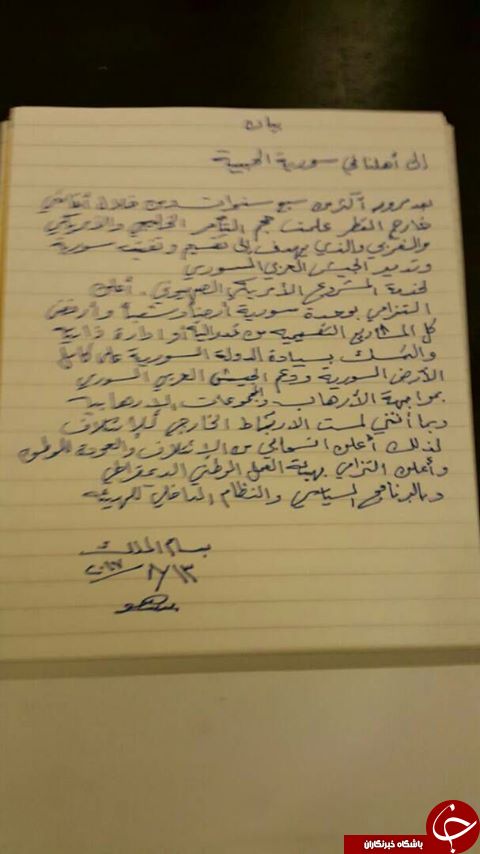 بيان
الى أهلنا في سورية الحبيبة
بعد مرور أكثر من سبع سنوات ومن خلال
خارج القطر علمت حجم التآمر الخليجي والأمريكي
والغربي والذي يهدف الى تقسيم وتفتيت سورية
وتدمير الجيش العربي السوري
لخدمة المشروع الأمريكي الصهيوني. أعلن
التزامي بوحدة سورية أرضاً وشعباً وأرفض
كل المشاريع التقسيمية من فدرالية أو ادارة ذاتية
والتمسك بسيادة الدولة السورية على كامل
الأرض السورية ودعم الجيش العربي السوري
بمواجهة الأرهاب والمجموعات الإرهابية
وبما أنني لمست الارتباط الخارجي للإئتلاف
لذلك أعلن انسحابي من الإئتلاف والعودة للوطن
وأعلن التزامي بهيئة العمل الوطني الديمقراطي
وبالبرنامج السياسي والنظام الداخلي للهيئة
بسام الملك
١٣/٨/٢٠١٧
باشگاه خبرنگاران